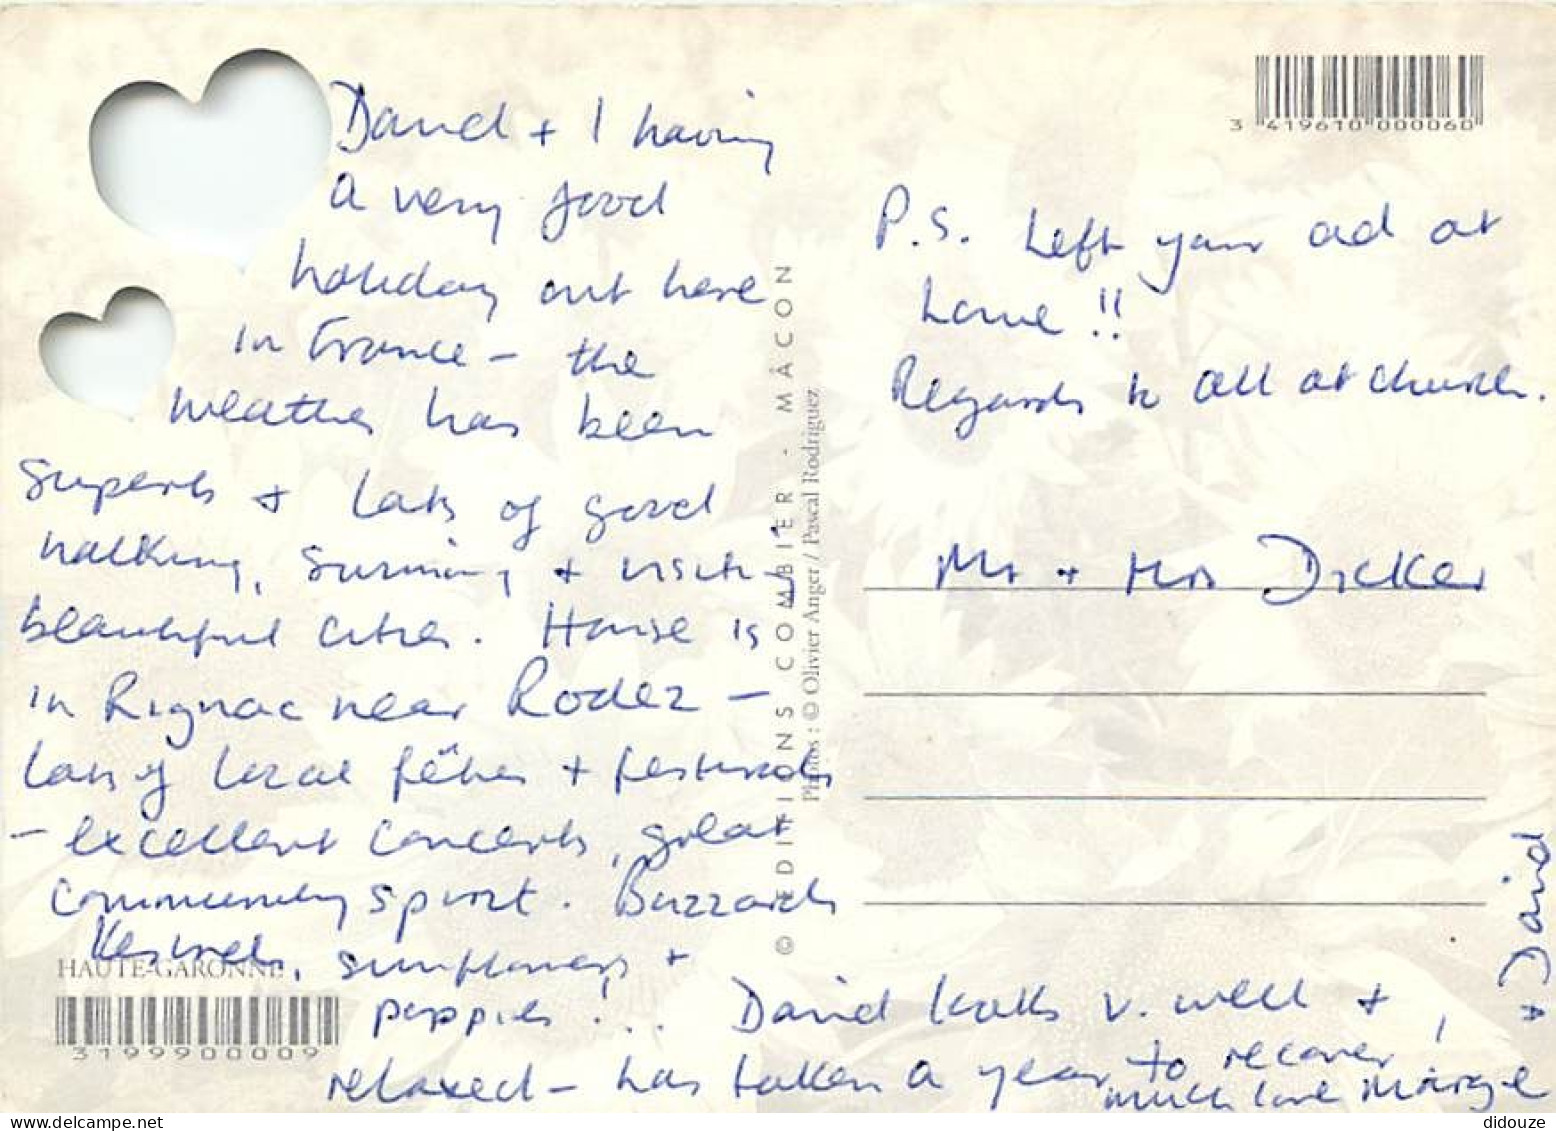 David + I having
a very good
holiday out here
in France – the
weather has been
superb + lots of good
walking, swimming + visiting
beautiful cities. House is
in Rignac near Rodez –
lots of local fêtes + festivals
– excellent concerts, great
community spirit. Buzzards
Kestrels, sunflowers +
poppies! .. David looks v. well +
relaxed – has taken a year to recover!
much love Margie
+ David
HAUTE-GARONNE
3199900009
© EDITIONS COMBIER - MÂCON
Photos : © Olivier Anger / Pascal Rodriguez
3 419610 000060
P.S. Left your ad at
home !!
Regards to all at church.
Mr + Mrs Dicker
didouze